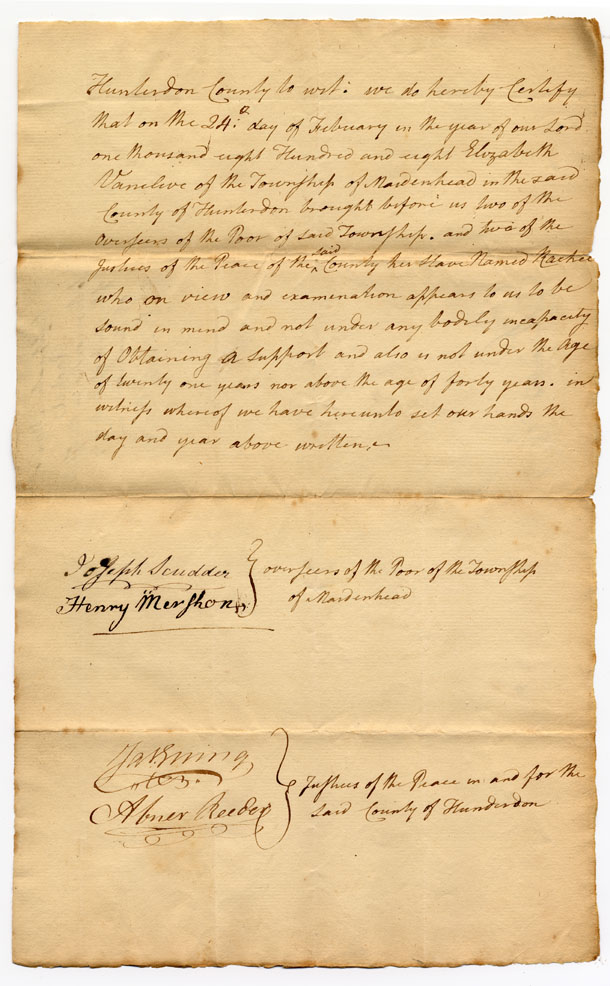 Hunterdon County to wit: we do hereby Certify
that on the 24.th day of February in the year of our Lord
one thousand eight Hundred and eight Elizabeth
Vancleve of the Township of Maidenhead in the said
County of Hunterdon brought before us two of the
Overseers of the Poor of said Township. and two of the
Justices of the Peace of the said County her slave Named
who on view and examination appears to us to be
sound in mind and not under any bodily incapacity
of Obtaining a support and also is not under the Age
of twenty one years nor above the age of forty years. in
witness whereof we have hereunto set our hands the
day and year above written.
Joseph Scudder
Henry Mershon
overseers of the Poor of the Township
of Maidenhead
Ja.s Ewing
Abner Reeder
Justices of the Peace in and for the
said County of Hunderdon